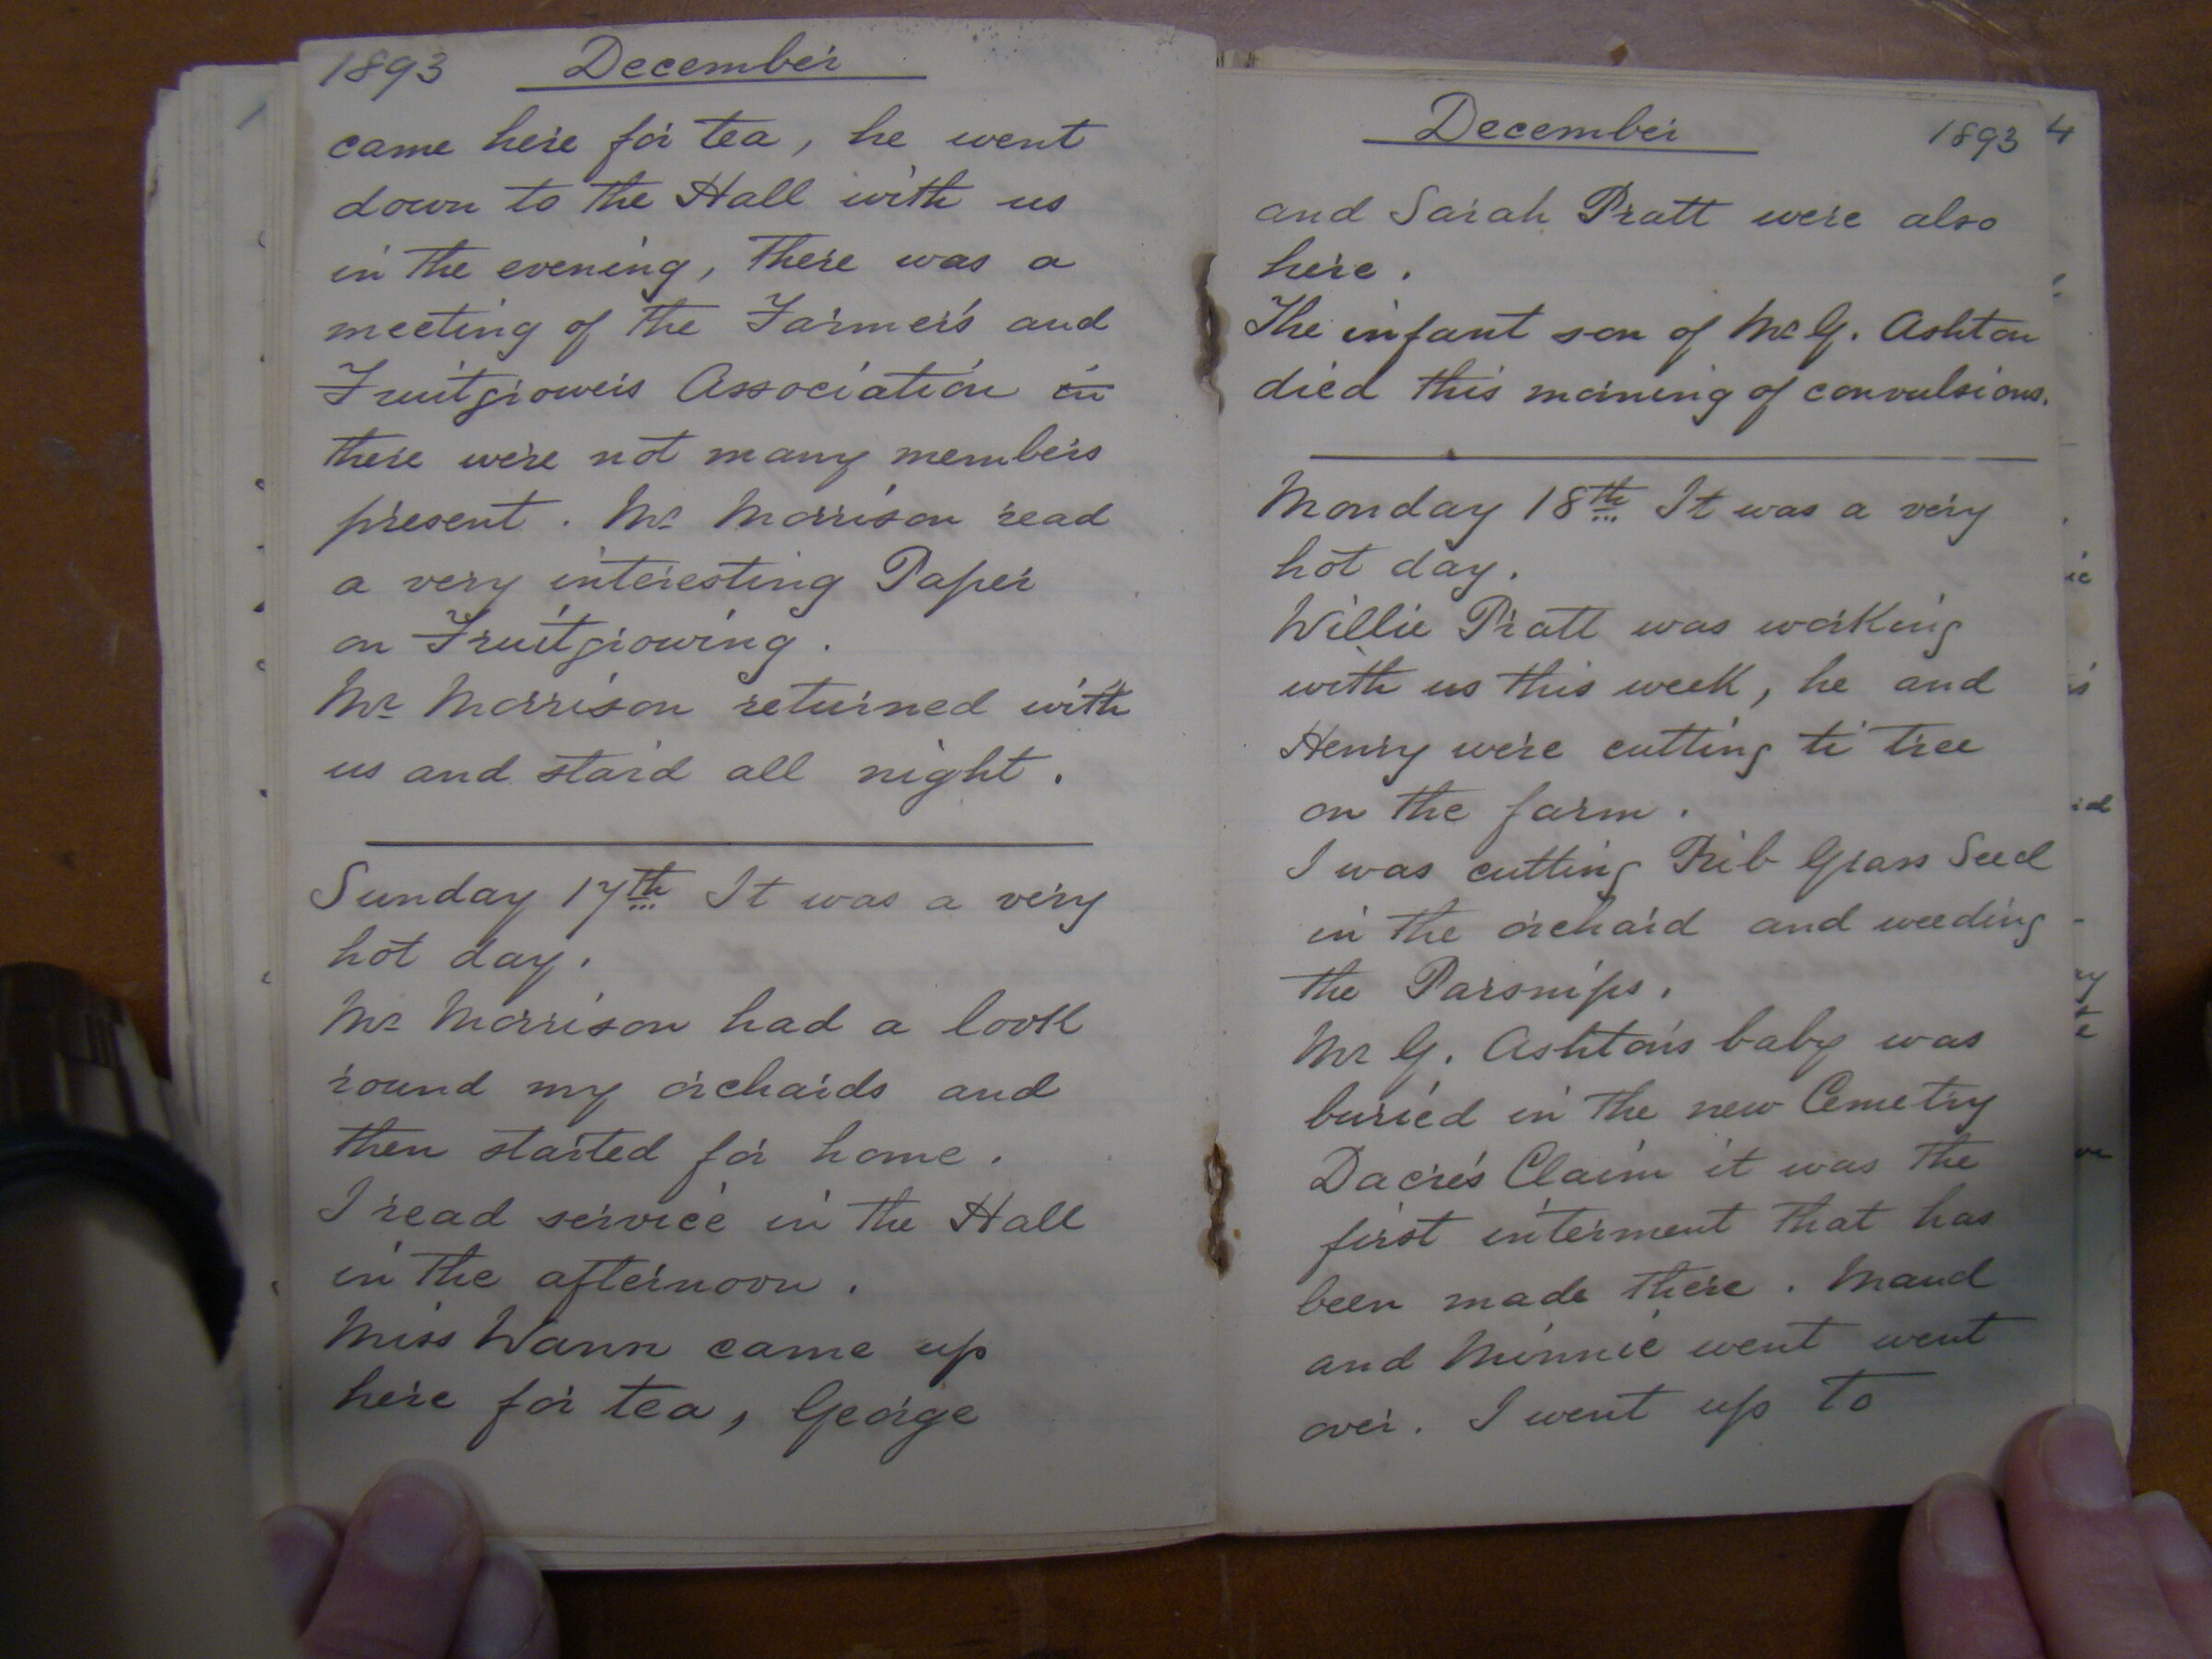 1893 December
came here for tea, he went
down to the Hall with us
in the evening, There was a
meeting of the Farmer's and
Fruitgrowers Association in
there were not many members
present. Mr Morrison read
a very interesting Paper
on Fruitgrowing.
Mr Morrison returned with
us and staid all night.
Sunday 17th It was a very
hot day.
Mr Morrison had a look
round my orchards and
then started for home.
I read service in the Hall
in the afternoon.
Miss Wann came up
here for tea, George
December 1893
and Sarah Pratt were also
here.
The infant son of Mr G. Ashton
died this morning of convulsions.
Monday 18th It was a very
hot day.
Willie Pratt was working
with us this week, he and
Henry were cutting ti tree
on the farm.
I was cutting Rib Grass Seed
in the orchard and weeding
the Parsnips.
Mr G. Ashton's baby was
buried in the new Cemetry
Dacre's Claim it was the
first interment that has
been made there. Maud
and Minnie went went
over. I went up to
4